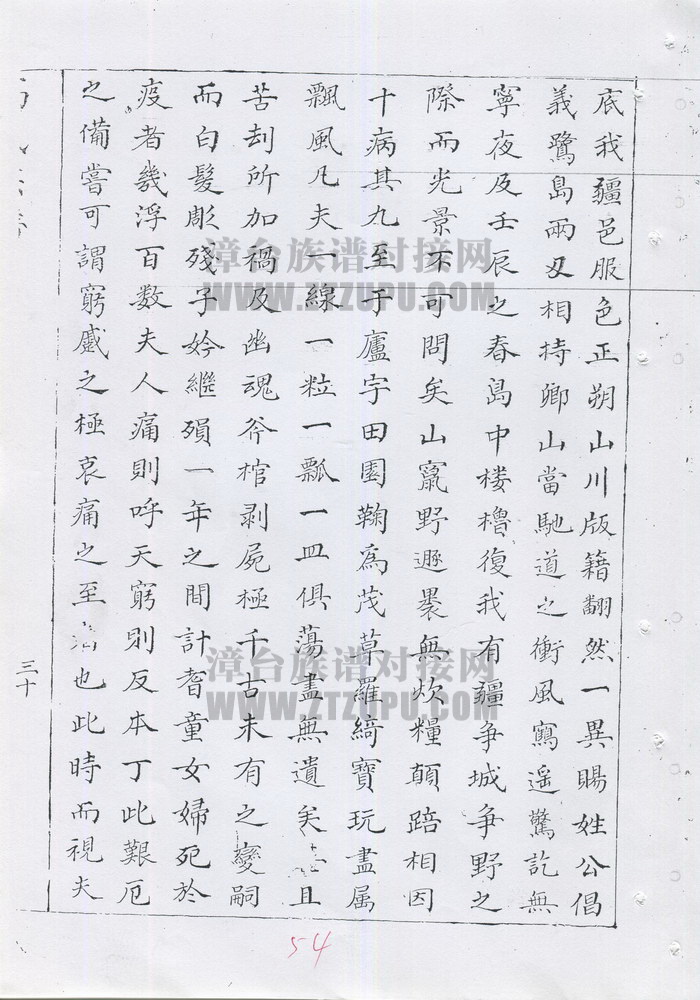 底我疆邑服色正朔山川版籍翻然一異賜姓公倡
義鷺島兩及相持鄉山當馳道之衝風寫遥驚訖無
寧夜及壬辰之春島中楼櫓復我有疆争城争野之
際而光景不可問矣山竄野遯褁無炊糧顛踣相因
十病其九至于廬宇田園鞠為茂草羅綺寶玩盡属
飄風凡夫一線一粒一瓢一皿俱蕩盡無遺矣且
苦刦所加禍及幽魂斧棺剥屍極千古未有之變嗣
而白髮彫殘子妗繼殞一年之間計耆童女婦死於
疫者幾浮百数夫人痛則呼天窮則反本丁此艱厄
之備嘗可謂窮慼之極哀痛之至也此時而視夫
三十
54
漳台族谱对接网
WWW.ZTZUPU.COM
漳台族谱对接网
WWW.ZTZUPU.COM